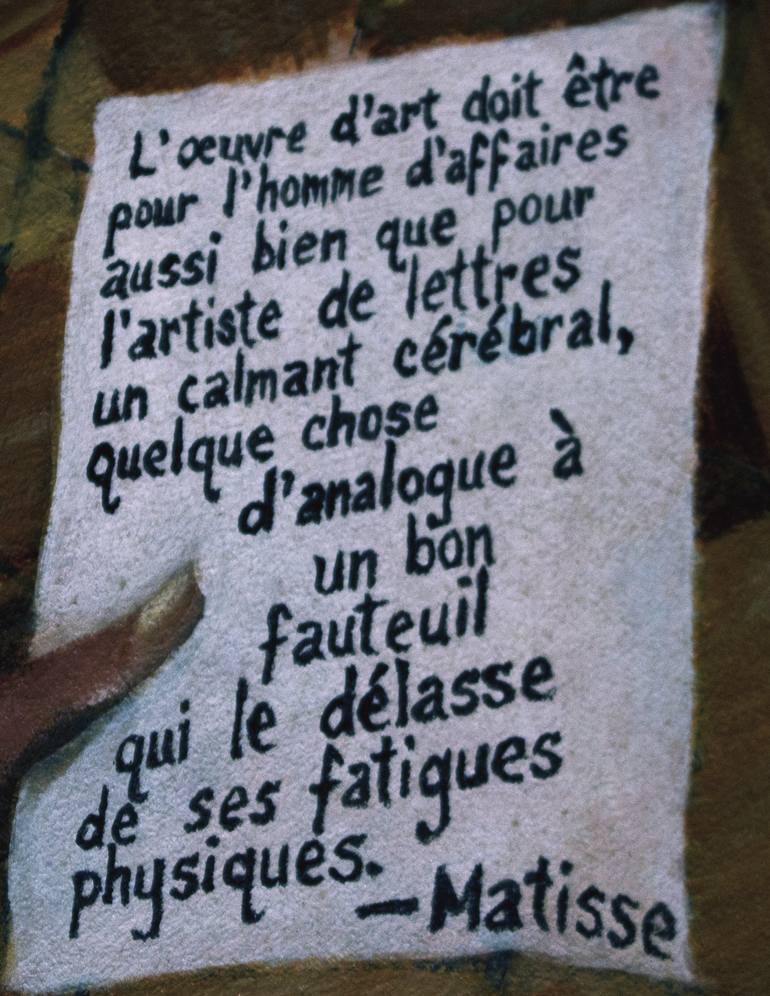 L'œuvre d'art doit être
pour l'homme d'affaires
aussi bien que pour
l'artiste de lettres
un calmant cérébral,
quelque chose
d'analogue à
un bon
fauteuil
qui le délasse
de ses fatigues
physiques.
—Matisse